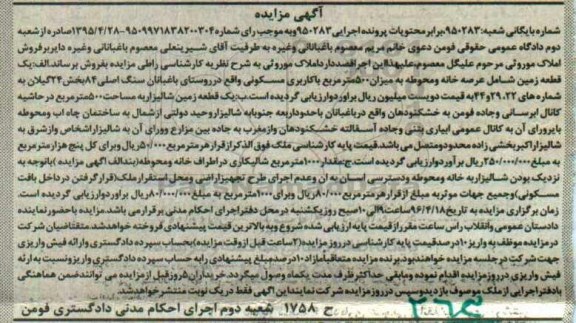 آگهی مزایده
شماره بایگانی شعبه: ۹۵۰۲۸۳، برابر محتویات پرونده اجرایی ۹۵۰۲۸۳ و به موجب رای شماره ۹۵۰۹۹۷۱۸۳۸۲۰۰۳۰۴-۱۳۹۵/۴/۲۸ صادره از شعبه
دوم دادگاه عمومی حقوقی فومن دعوی خانم مریم معصوم باغبانانی وغیره به طرفیت آقای شیرینعلی معصوم باغبانانی وغیره دایر بر فروش
املاک موروثی مرحوم علیگل معصوم، علیهذا این اجرا قصد دارد املاک موروثی به شرح نظریه کارشناسی را طی مزایده بفروش برساند. الف: یک
قطعه زمین شامل عرصه خانه ومحوطه به میزان ۵۰۰ مترمربع باکاربری مسکونی واقع در روستای باغبانان سنگ اصلی ۸۴ بخش ۲۴ گیلان به
شماره های ۲۲، ۲۹ و ۴۴ به قیمت دویست میلیون ریال برآورد ارزیابی گردیده است. ب: یک قطعه زمین شالیزار به مساحت ۵۰۰۰ مترمربع در حاشیه
کانال آبرسانی وجاده فومن به خشکنودهان واقع در باغبانان باحدود اربعه جنوبا به شالیزار وحید دولتی از شمال به ساختمان چاه آب ومحوطه
بایر ورای آن به کانال عمومی آبیاری بتنی وجاده آسفالته خشکنودهان واز مغرب به جاده بین مزارع وورای آن به شالیزار اشخاص واز شرق به
شالیزار اکبر بخشی زاده محدود ومتصل می باشد. قیمت پایه کارشناسی ملک فوق الذکر از قرار هر مترمربع ۵۰/۰۰۰ ریال وبرای کل پنج هزار مترمربع
به مبلغ ۲۵۰/۰۰۰/۰۰۰ ریال برآورد ارزیابی گردیده است. ج: مقدار ۱۰۰۰ مترمربع شالیکاری در اطراف خانه ومحوطه (بند الف آگهی مزایده) باتوجه به
نزدیک بودن شالیزار به خانه ومحوطه ودسترسی آسان به آن وعدم اجرای طرح تجهیز اراضی ومحل استقرار ملک (قرار گرفتن در داخل بافت
مسکونی) وجمیع جهات موثر به مبلغ از قرار هر مترمربع ۸۰/۰۰۰ ریال وبرای ۱۰۰۰ مترمربع به مبلغ ۸۰/۰۰۰/۰۰۰ ریال برآورد ارزیابی گردیده است
زمان برگزاری مزایده به تاریخ ۹۶/۴/۱۸ ساعت ۹ الی ۱۰ صبح روز یکشنبه در محل دفتر اجرای احکام مدنی برقرار می باشد. مزایده باحضور نماینده
دادستان عمومی وانقلاب راس ساعت مقرر از قیمت پایه ارزیابی شده شروع وبه بالاترین قیمت پیشنهادی فروخته خواهد شد. متقاضیان شرکت
در مزایده موظف به واریز ۱۰ درصد قیمت پایه کارشناسی در روز مزایده (۲ ساعت قبل از وقت مزایده) به حساب سپرده دادگستری وارائه فیش واریزی
جهت شرکت در جلسه مزایده خواهند بود. برنده مزایده متعاقبا مازاد ۱۰ درصد مبلغ پیشنهادی را به حساب سپرده دادگستری واریز ونسبت به ارئه
فیش واریزی در روز مزایده اقدام نموده ومابقی حداکثر ظرف مدت یکماه وصول میگردد. خریداران ۵ روز قبل از مزایده می توانند ضمن هماهنگی
با دفتر اجرا یی از ملک موصوف بازدید وسپس در روز مزایده شرکت نمایند این آگهی فقط در یک نوبت منتشر خواهد شد.
ح ۱۷۵۸ شعبه دوم اجرای احکام مدنی دادگستری فومن
۲۶۴